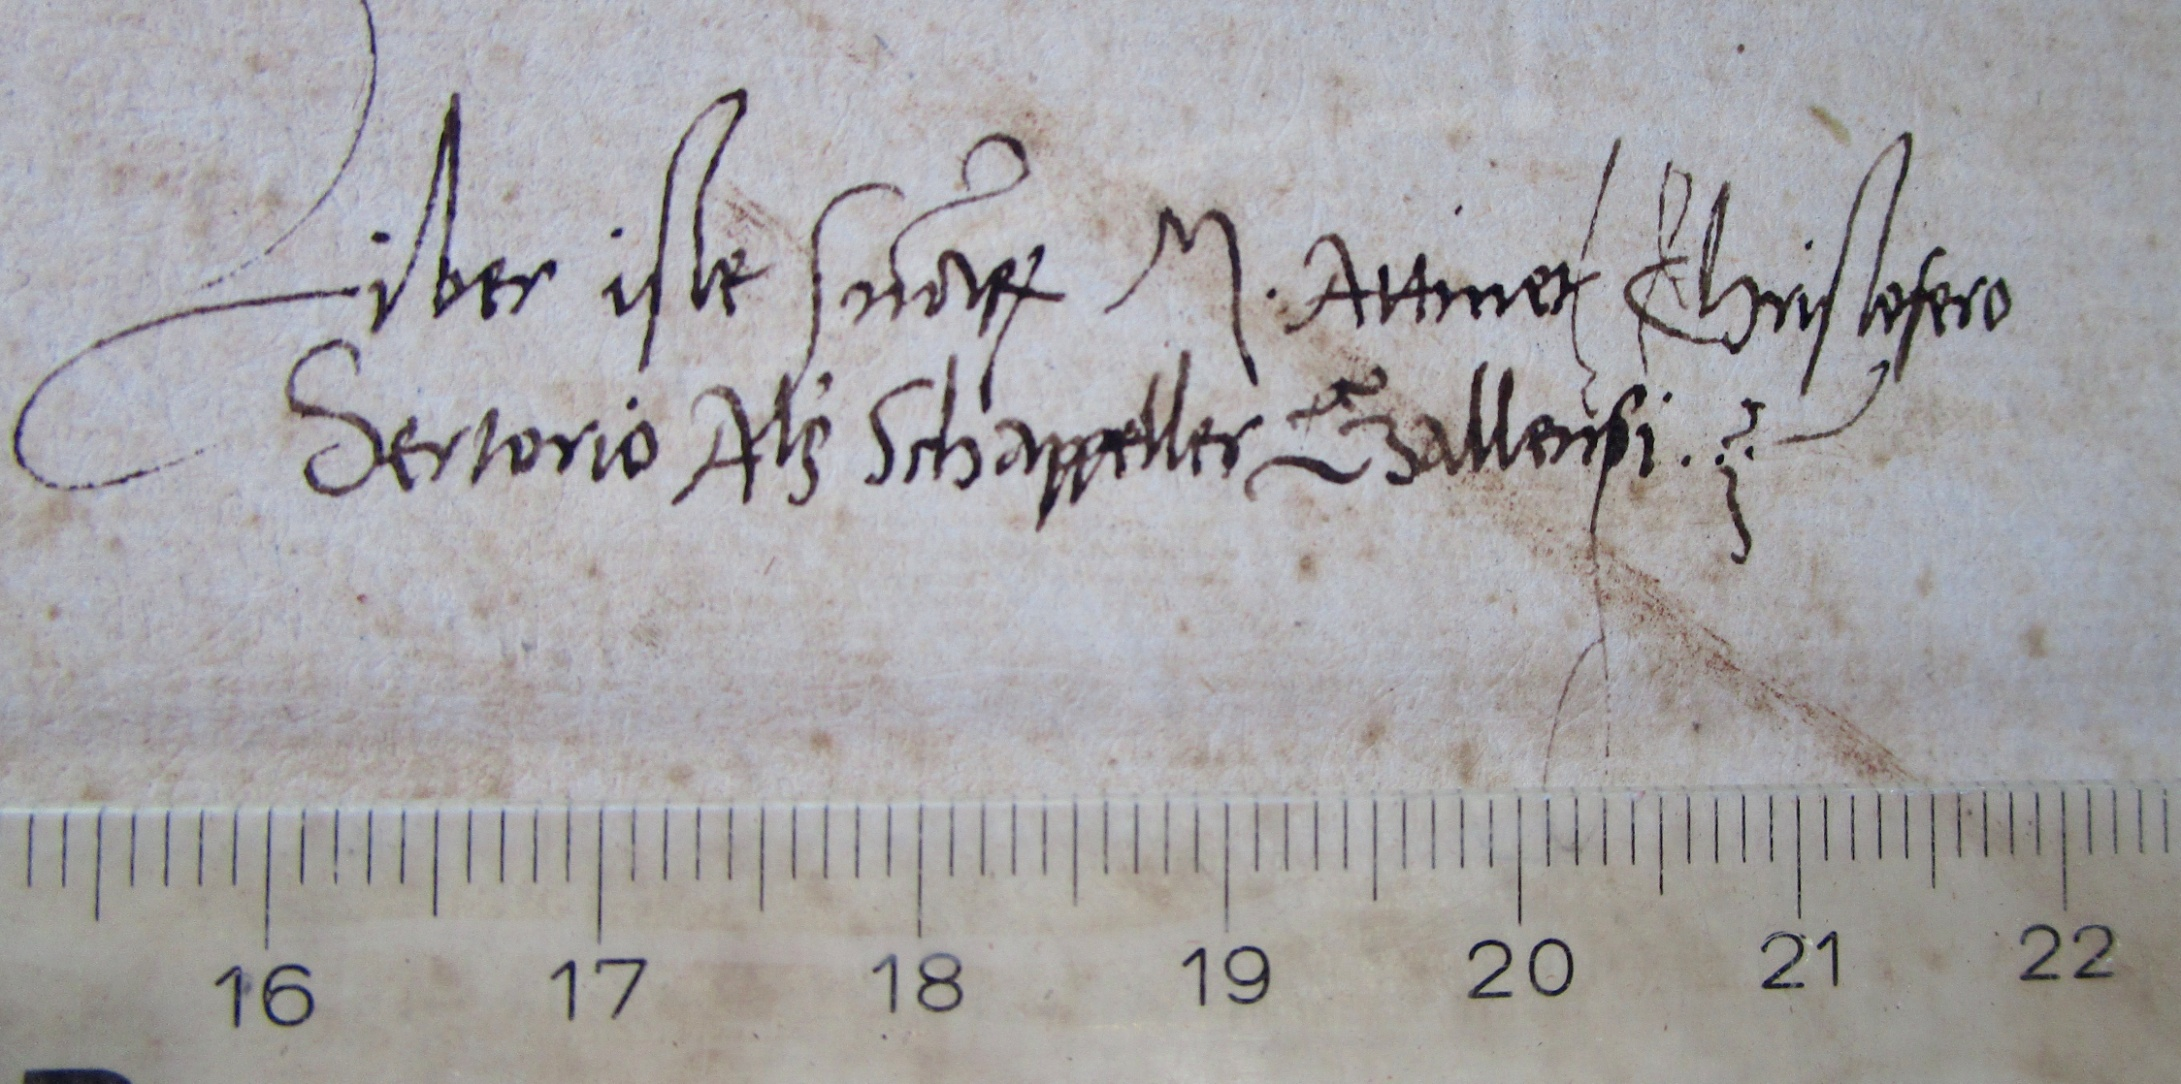 Liber iste M. Attinet Christofero
Sertorio Als Schappeller Gallensi.
16 17 18 19 20 21 22